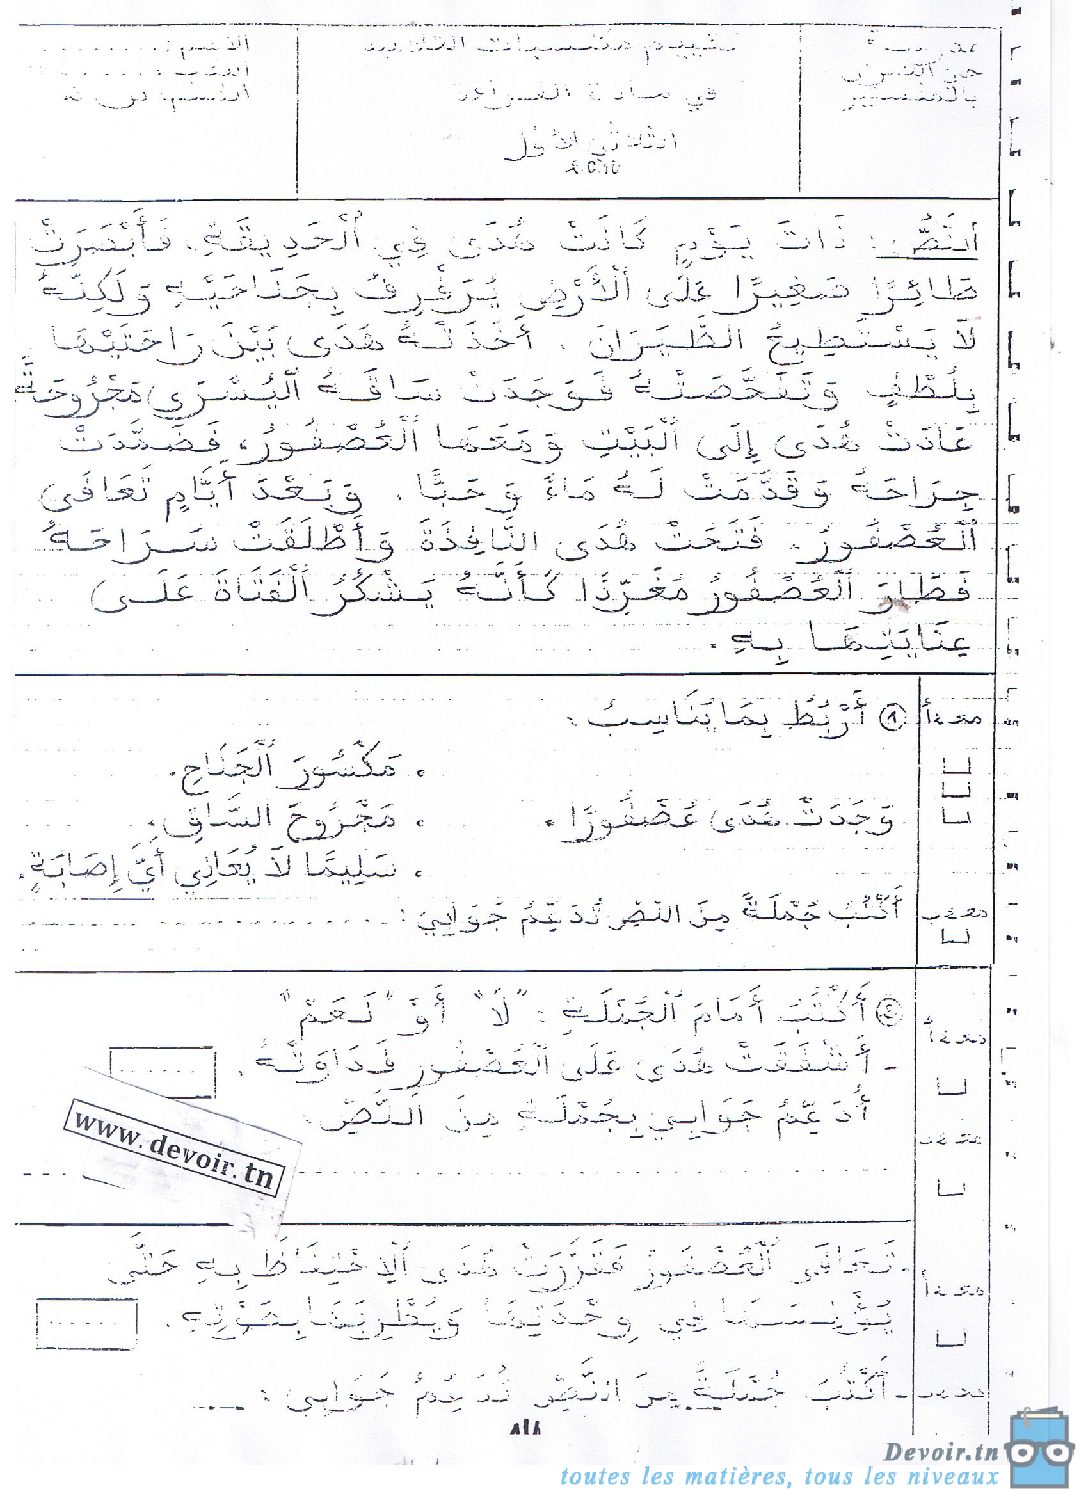 الاسم: . . . . . . .
تقييم مكتسبات التلاميذ
في مادة القراءة
الثلاثي الأول
النَّصُّ: ذَاتَ يَوْمٍ كَانَتْ هُدَى فِي ٱلْحَدِيقَةِ. فَأَبْصَرَتْ
طَائِرًا صَغِيرًا عَلَى ٱلْأَرْضِ يُرَفْرِفُ بِجَنَاحَيْهِ وَلَكِنَّهُ
لَا يَسْتَطِيعُ الطَّيَرَانَ. أَخَذَتْهُ هُدَى بَيْنَ رَاحَتَيْهَا
بِلُطْفٍ وَتَفَحَّصَتْهُ فَوَجَدَتْ سَاقَهُ ٱلْيُسْرَى مَجْرُوحَةً
عَادَتْ هُدَى إِلَى ٱلْبَيْتِ وَمَعَهَا ٱلْعُصْفُورُ، فَضَمَّدَتْ
جِرَاحَهُ وَقَدَّمَتْ لَهُ مَاءً وَحَبًّا. وَبَعْدَ أَيَّامٍ تَعَافَى
ٱلْعُصْفُورُ. فَتَحَتْ هُدَى النَّافِذَةَ وَأَطْلَقَتْ سَرَاحَهُ
فَطَارَ ٱلْعُصْفُورُ مُغَرِّدًا كَأَنَّهُ يَشْكُرُ ٱلْفَتَاةَ عَلَى
عِنَايَتِهَا بِهِ.
مع 1أ
① أَرْبُطُ بِمَا يُنَاسِبُ:
• مَكْسُورَ ٱلْجَنَاحِ.
وَجَدَتْ هُدَى عُصْفُورًا • • مَجْرُوحَ السَّاقِ.
• سَلِيمًا لَا يُعَانِي أَيَّ إِصَابَةٍ.
أَكْتُبُ جُمْلَةً مِنَ النَّصِّ تُدَعِّمُ جَوَابِي: . . . . . . . . . .
② أَكْتُبُ أَمَامَ ٱلْجُمْلَةِ: "لَا" أَوْ "نَعَمْ"
- أَشْفَقَتْ هُدَى عَلَى ٱلْعُصْفُورِ فَدَاوَتْهُ. ......
أُدَعِّمُ جَوَابِي بِجُمْلَةٍ مِنَ النَّصِّ.
www.devoir.tn
- تَعَافَى ٱلْعُصْفُورُ فَقَرَّرَتْ هُدَى ٱلِاحْتِفَاظَ بِهِ حَتَّى
يُؤْنِسَهَا فِي وِحْدَتِهَا وَيُطْرِبَهَا بِصَوْتِهِ. ......
- أَكْتُبُ جُمْلَةً مِنَ النَّصِّ تُدَعِّمُ جَوَابِي: ....
Devoir.tn
toutes les matières, tous les niveaux